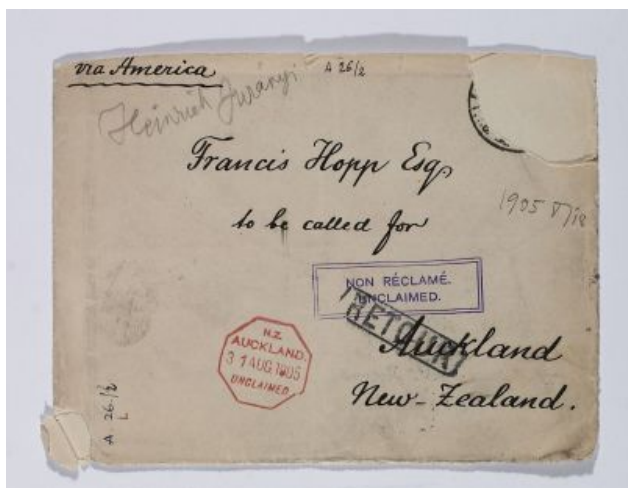 via America
A 26/2
Heinrich Jurányi
Francis Hopp Esq.
1905
to be called for
NON RÉCLAMÉ.
UNCLAIMED.
RETOUR
N.Z.
AUCKLAND.
31 AUG 1905
UNCLAIMED.
Auckland
New-Zealand.
A 26/2